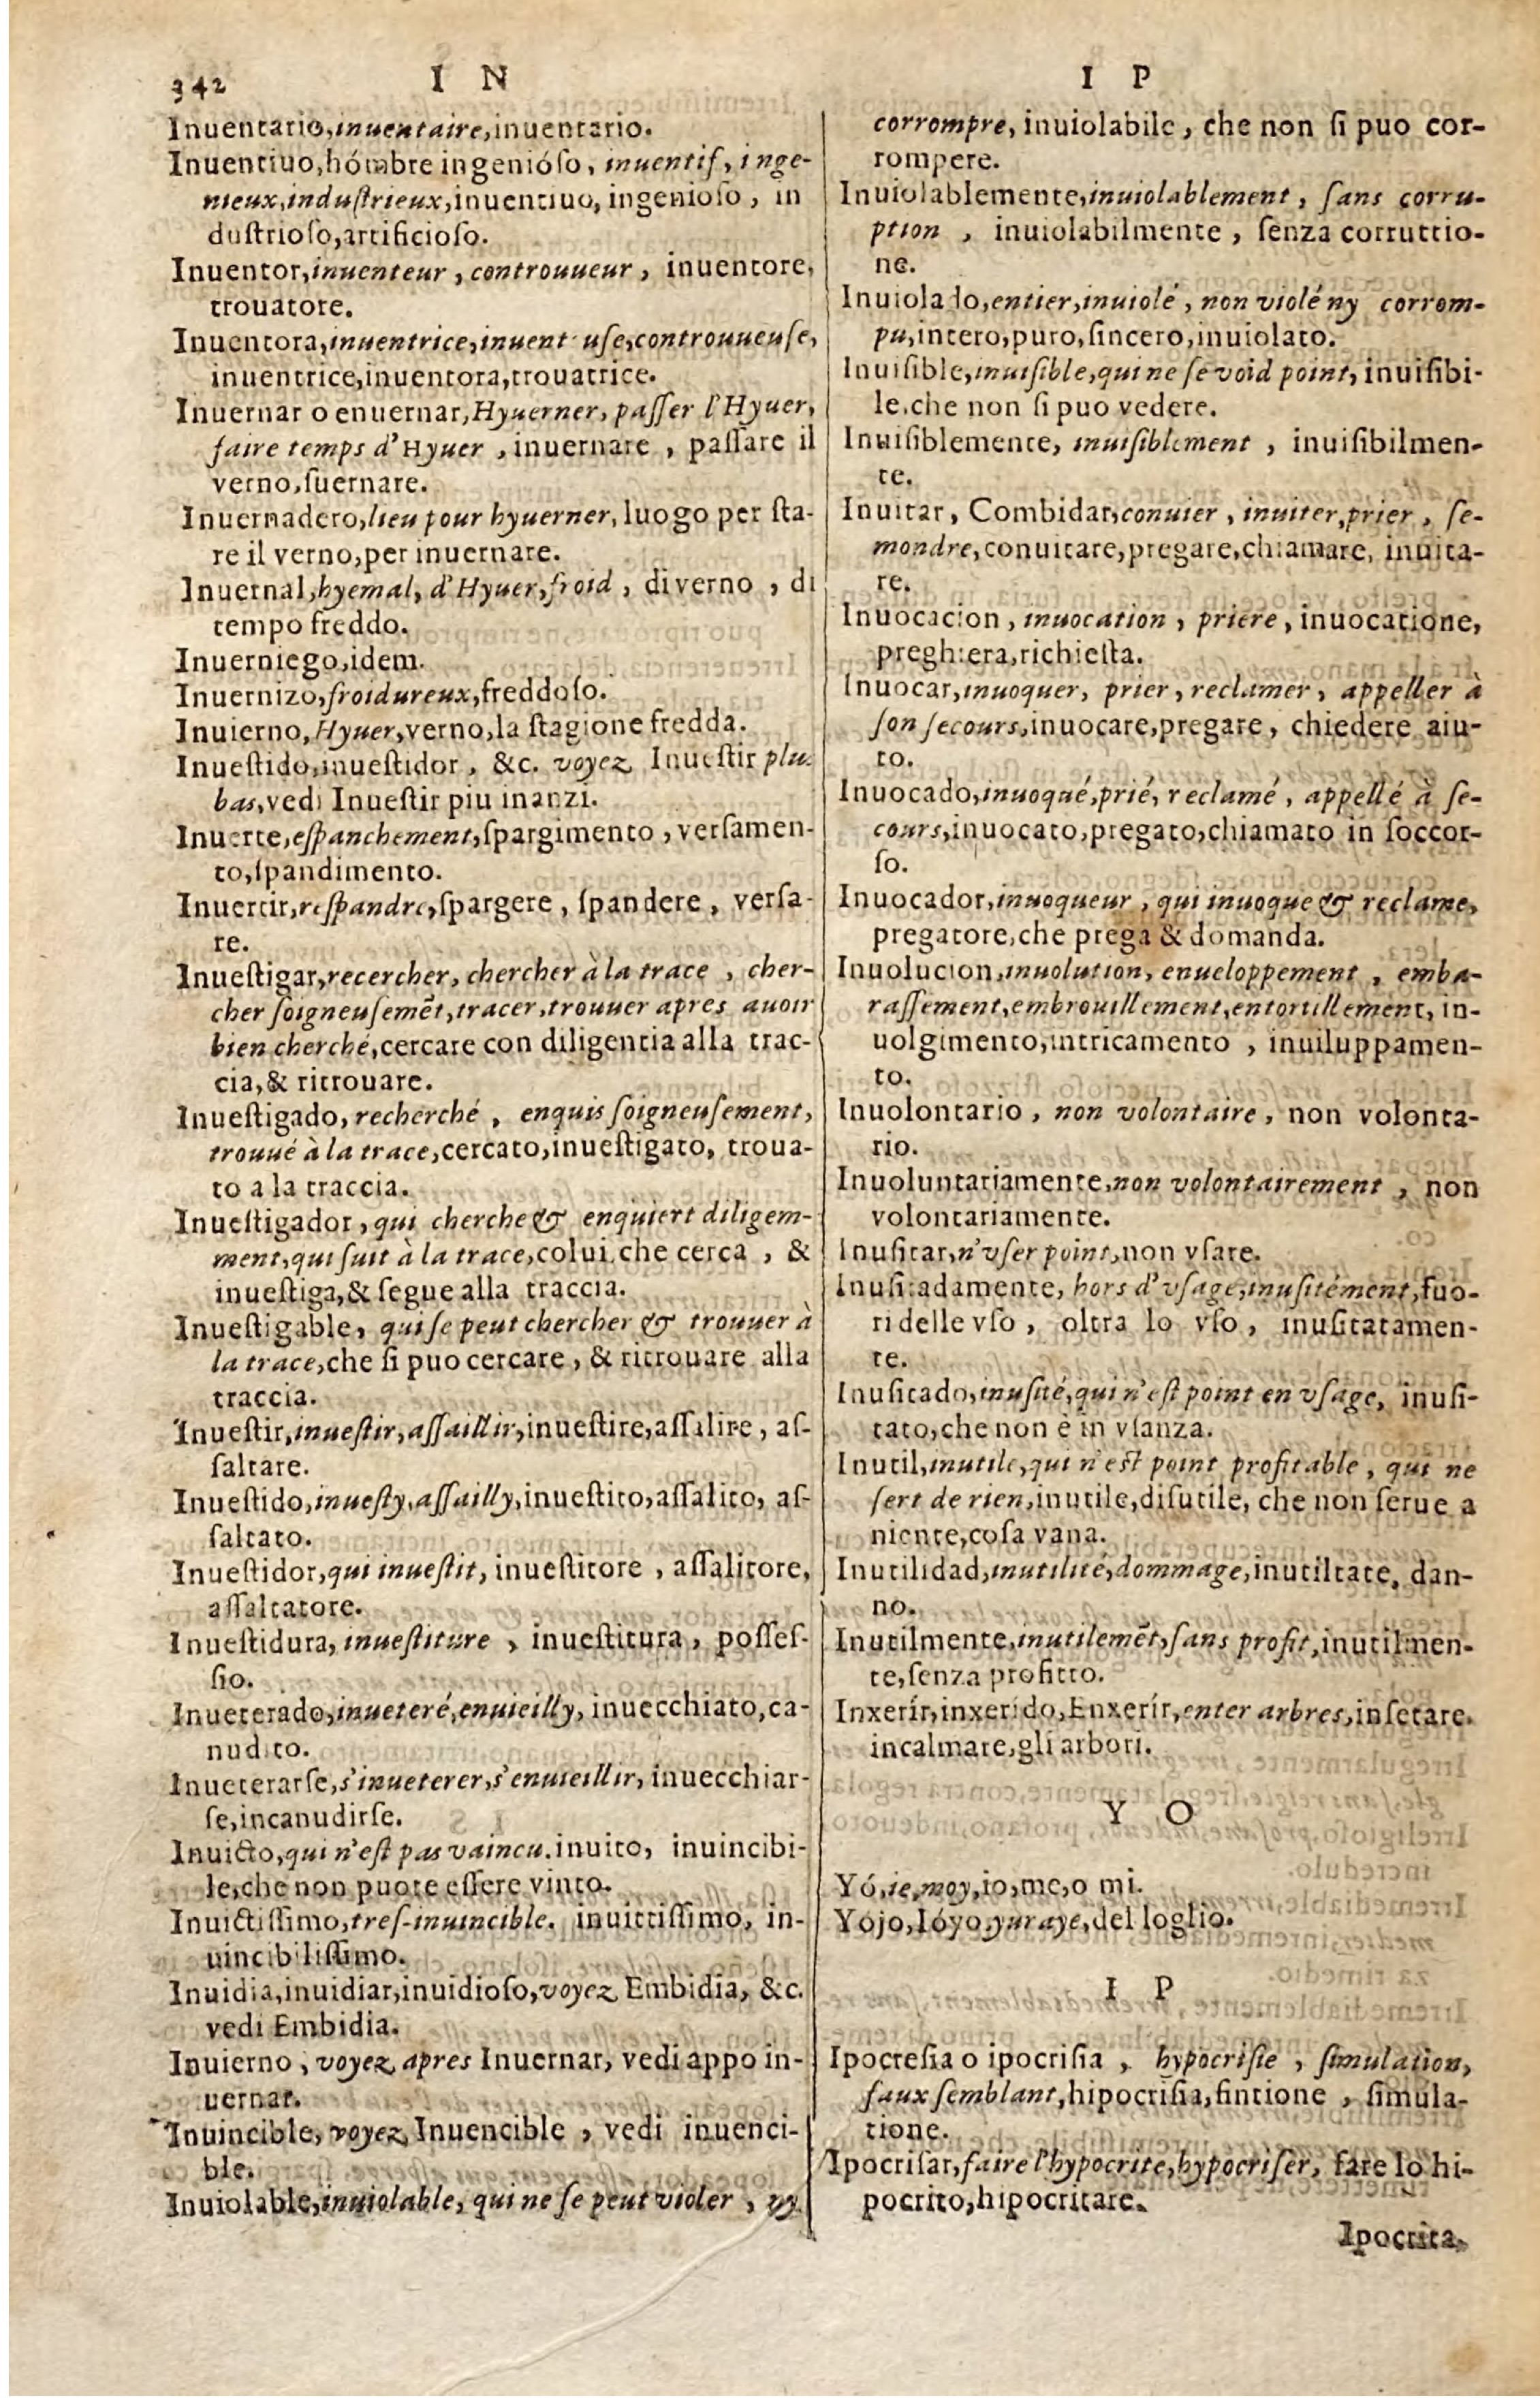 342 I N
Inuentario,inuentaire,inuentario.
Inuentiuo,hómbre ingenióſo, inuentif, inge-
nieux,induſtrieux,inuentiuo, ingenioſo, in
duſtrioſo,artificioſo.
Inuentor,inuenteur, controuueur, inuentore,
trouatore.
Inuentora,inuentrice,inuent uſe,controuueuſe,
inuentrice,inuentora,trouatrice.
Inuernar o enuernar,Hyuerner, paſſer l'Hyuer,
faire temps d'Hyuer, inuernare, paſſare il
verno,ſuernare.
Inuernadero,lieu pour hyuerner, luogo per ſta-
re il verno,per inuernare.
Inuernal,hyemal, d'Hyuer,froid, di verno, di
tempo freddo.
Inuerniego,idem.
Inuernizo,froidureux,freddoſo.
Inuierno,Hyuer,verno,la ſtagione fredda.
Inueſtido,inueſtidor, &c. voyez Inueſtir plu.
bas,vedi Inueſtir piu inanzi.
Inuerte,eſpanchement,ſpargimento, verſamen-
to,ſpandimento.
Inuertir,reſpandre,ſpargere, ſpandere, verſa-
re.
Inueſtigar,recercher, chercher à la trace, cher-
cher ſoigneuſemẽt,tracer,trouuer apres auoir
bien cherché,cercare con diligentia alla trac-
cia,& ritrouare.
Inueſtigado, recherché, enquis ſoigneuſement,
trouué à la trace,cercato,inueſtigato, troua-
to a la traccia.
Inueſtigador, qui cherche & enquiert diligem-
ment,qui ſuit à la trace,colui che cerca, &
inueſtiga,& ſegue alla traccia.
Inueſtigable, qui ſe peut chercher & trouuer à
la trace,che ſi puo cercare, & ritrouare alla
traccia.
Inueſtir,inueſtir,aſſaillir,inueſtire,aſſalire, aſ-
ſaltare.
Inueſtido,inueſty,aſſailly,inueſtito,aſſalito, aſ-
ſaltato.
Inueſtidor,qui inueſtit, inueſtitore, aſſalitore,
aſſaltatore.
Inueſtidura, inueſtiture, inueſtitura, poſſeſ-
ſio.
Inueterado,inueteré,enuieilly, inuecchiato,ca-
nudito.
Inueterarſe,s'inueterer,s'enuieillir, inuecchiar-
ſe,incanudirſe.
Inuicto,qui n'eſt pas vaincu. inuito, inuincibi-
le,che non puote eſſere vinto.
Inuictiſſimo,treſ-inuincible. inuittiſſimo, in-
uincibiliſſimo.
Inuidia,inuidiar,inuidioſo,voyez Embidia, &c.
vedi Embidia.
Inuierno, voyez apres Inuernar, vedi appo in-
uernar.
Inuincible, voyez Inuencible, vedi inuenci-
ble.
Inuiolable,inuiolable, qui ne ſe peut violer, ny
I P
corrompre, inuiolabile, che non ſi puo cor-
rompere.
Inuiolablemente,inuiolablement, ſans corru-
ption, inuiolabilmente, ſenza corruttio-
ne.
Inuiolado,entier,inuiolé, non violé ny corrom-
pu,intero,puro,ſincero,inuiolato.
Inuiſible,inuiſible,qui ne ſe void point, inuiſibi-
le,che non ſi puo vedere.
Inuiſiblemente, inuiſiblement, inuiſibilmen-
te.
Inuitar, Combidar,conuier, inuiter,prier, ſe-
mondre,conuitare,pregare,chiamare, inuita-
re.
Inuocacion, inuocation, priere, inuocatione,
preghiera,richieſta.
Inuocar,inuoquer, prier, reclamer, appeller à
ſon ſecours,inuocare,pregare, chiedere aiu-
to.
Inuocado,inuoqué,prié, reclamé, appellé à ſe-
cours,inuocato,pregato,chiamato in ſoccor-
ſo.
Inuocador,inuoqueur, qui inuoque & reclame,
pregatore,che prega & domanda.
Inuolucion,inuolution, enueloppement, emba-
raſſement,embrouillement,entortillement, in-
uolgimento,intricamento, inuiluppamen-
to.
Inuolontario, non volontaire, non volonta-
rio.
Inuoluntariamente,non volontairement, non
volontariamente.
Inuſitar,n'vſer point,non vſare.
Inuſitadamente, hors d'vſage,inuſitément,fuo-
ri delle vſo, oltra lo vſo, inuſitatamen-
te.
Inuſitado,inuſité,qui n'eſt point en vſage, inuſi-
tato,che non è in vſanza.
Inutil,inutile,qui n'eſt point profitable, qui ne
ſert de rien,inutile,diſutile, che non ſerue a
niente,coſa vana.
Inutilidad,inutilité,dommage,inutiltate, dan-
no.
Inutilmente,inutilemẽt,ſans profit,inutilmen-
te,ſenza profitto.
Inxerír,inxerido,Enxerír,enter arbres,inſetare.
incalmare,gli arbori.
Y O
Yó,ie,moy,io,me,o mi.
Yojo,Ióyo,yuraye,del loglio.
I P
Ipocreſia o ipocriſia, hypocriſie, ſimulation,
faux ſemblant,hipocriſia,fintione, ſimula-
tione.
Ipocriſar,faire l'hypocrite,hypocriſer, fare lo hi-
pocrito,hipocritare.
Ipocrita,